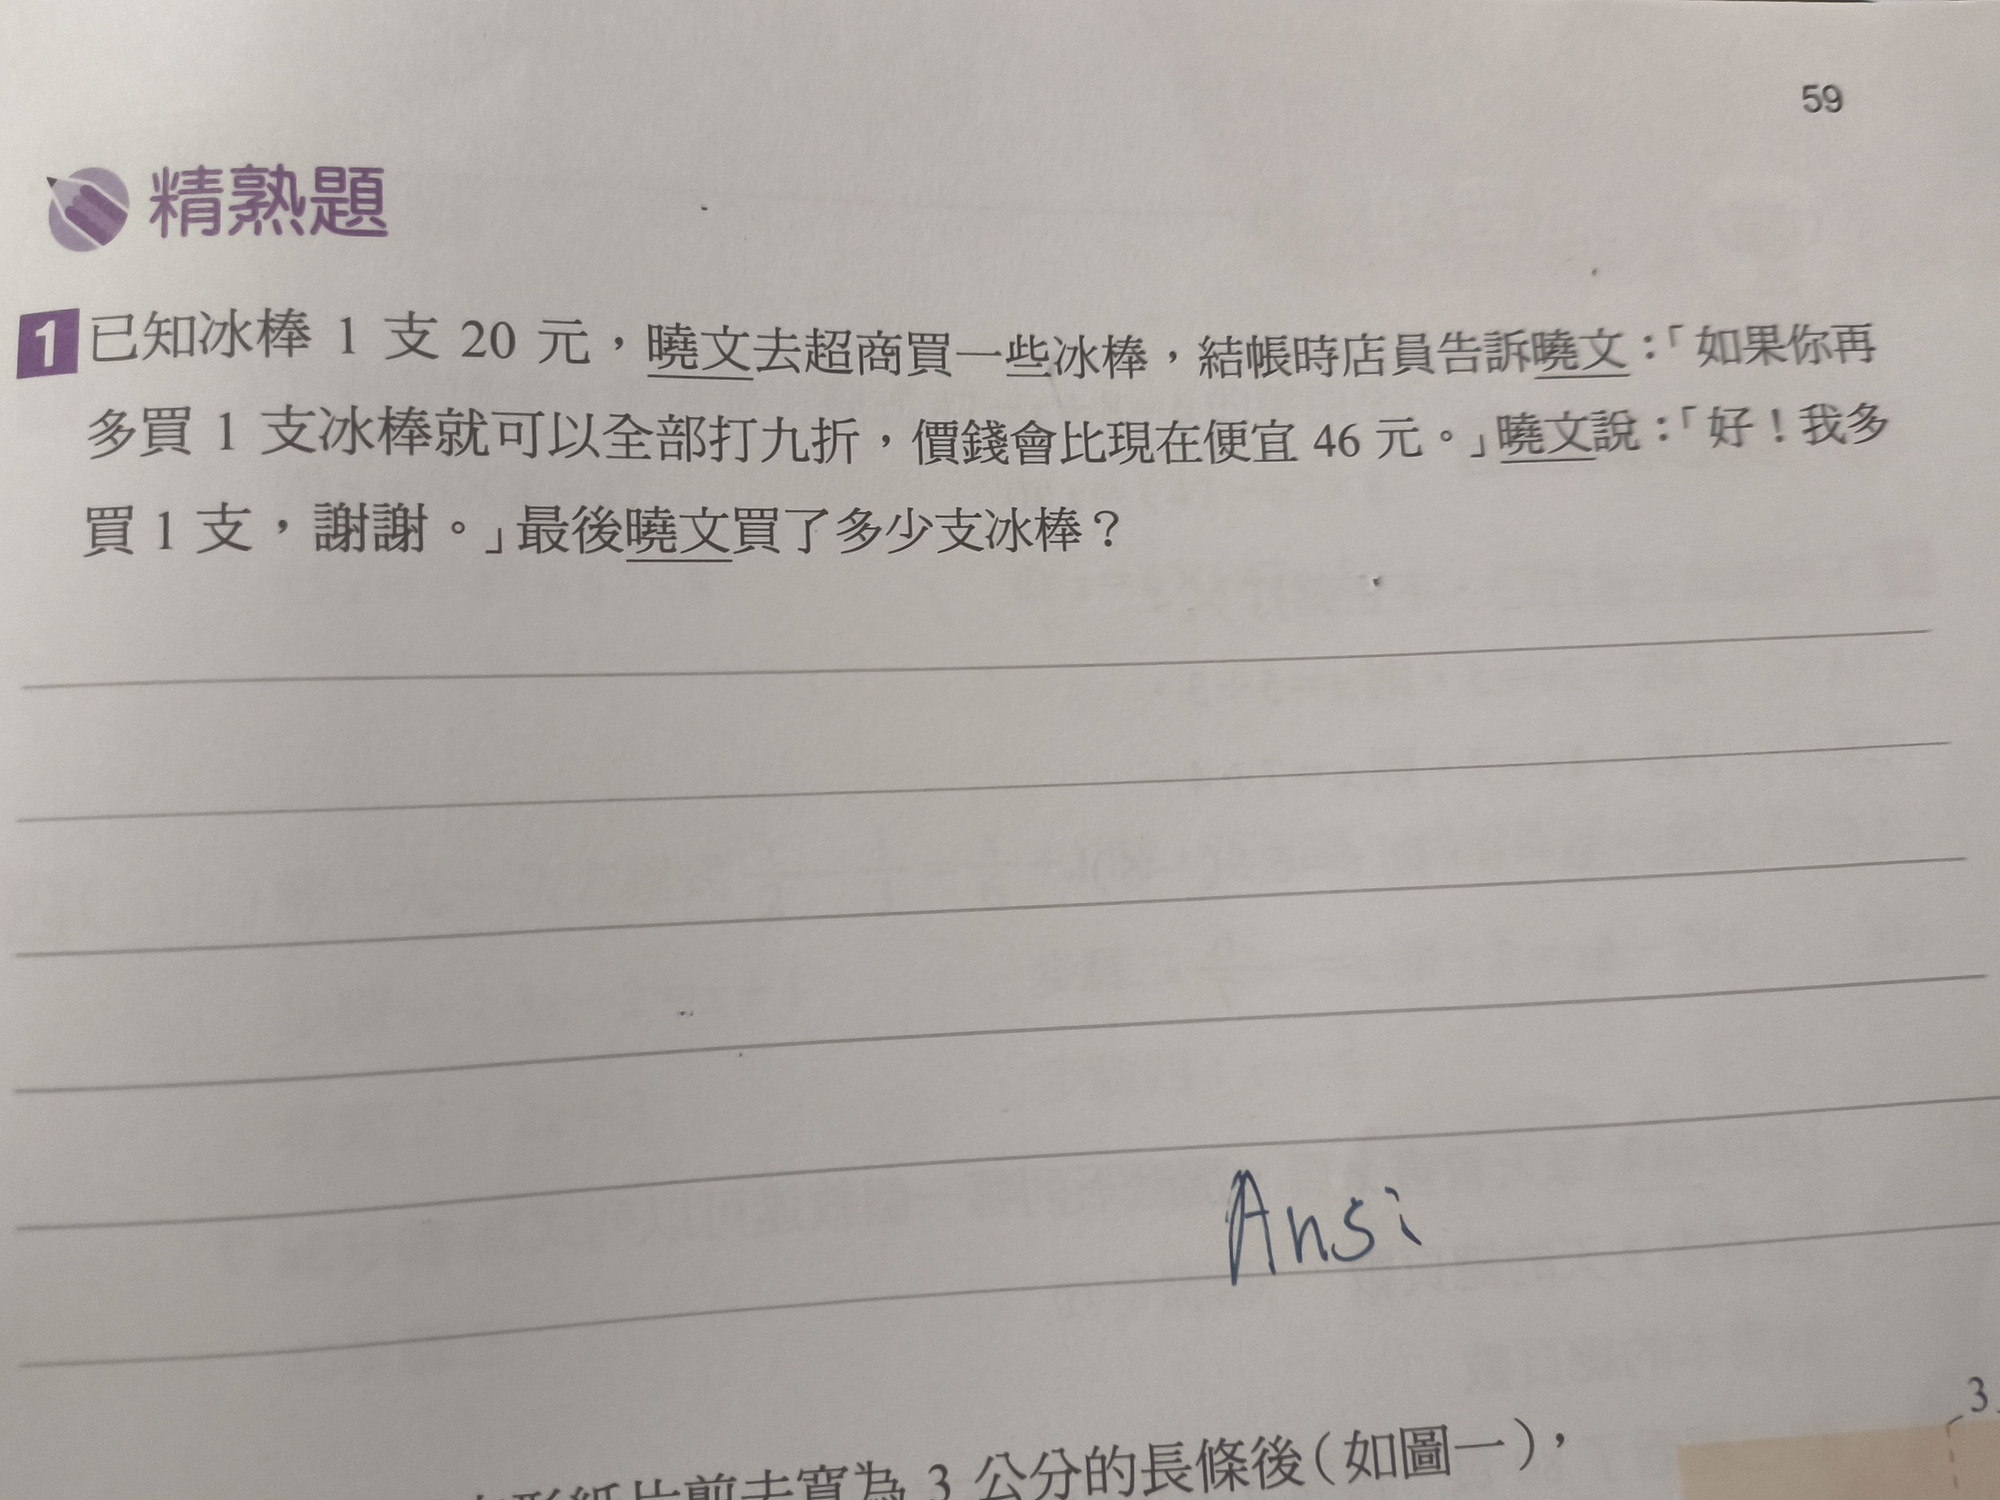 59
精熟題
1 已知冰棒 1 支 20 元，曉文去超商買一些冰棒，結帳時店員告訴曉文：「如果你再
多買 1 支冰棒就可以全部打九折，價錢會比現在便宜 46 元。」曉文說：「好！我多
買 1 支，謝謝。」最後曉文買了多少支冰棒？
Ansi
形紙片剪去寬為 3 公分的長條後(如圖一)，
3